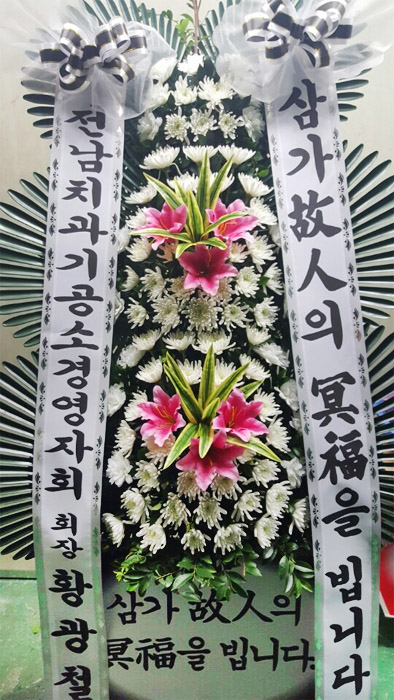 삼가故人의 冥福을 빕니다
전남치과기공소경영자회 회장 황광철
삼가 故人의
冥福을 빕니다.